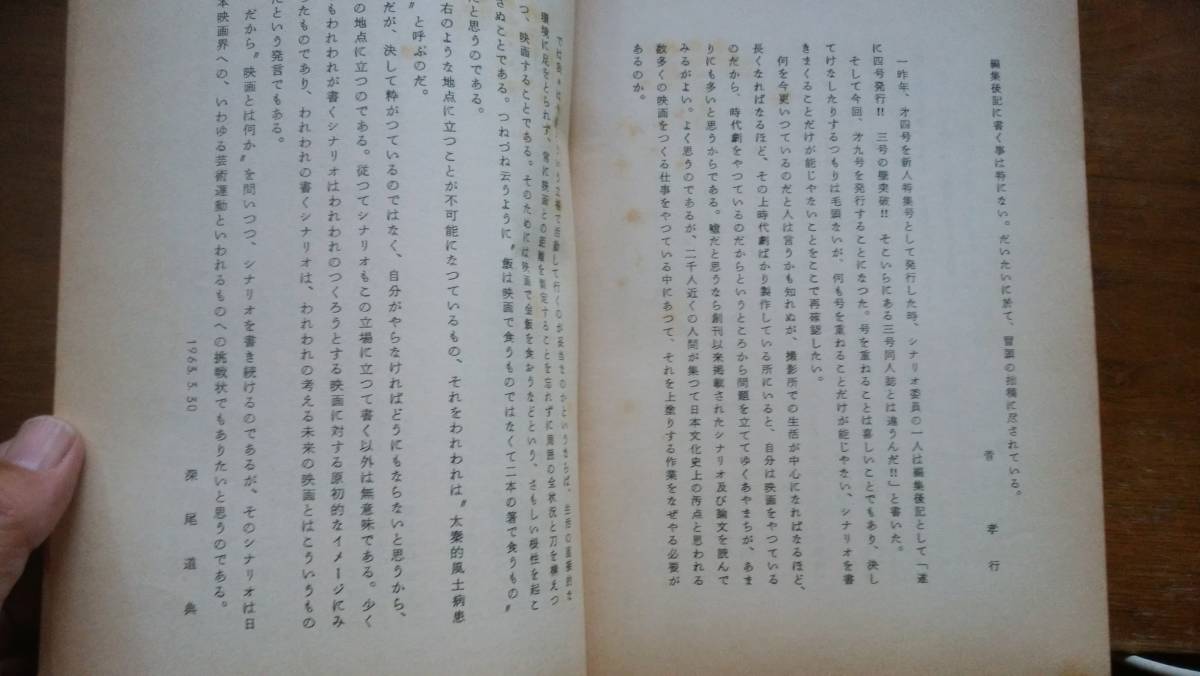 編集後記に書く事は特にない。だいたいに於て、冒頭の拙稿に尽されている。
孝行
一昨年、才四号を新人特集号として発行した時、シナリオ委員の一人は編集後記として「遂
に四号発行!! 三号の壁突破!! そこいらにある三号同人誌とは違うんだ!!」と書いた。
そして今回、才九号を発行することになつた。号を重ねることは喜しいことでもあり、決し
てけなしたりするつもりは毛頭ないが、何も号を重ねることだけが能じやない、シナリオを書
きまくることだけが能じやないことをここで再確認したい。
何を今更いつているのだと人は言うかも知れぬが、撮影所での生活が中心になればなるほど、
長くなればなるほど、その上時代劇ばかり製作している所にいると、自分は映画をやつている
のだから、時代劇をやつているのだからというところから問題を立ててゆくあやまちが、あま
りにも多いと思うからである。嘘だと思うなら創刊以来掲載されたシナリオ及び論文を読んで
みるがよい。よく思うのであるが、二千人近くの人間が集つて日本文化史上の汚点と思われる
数多くの映画をつくる仕事をやつている中にあつて、それを上塗りする作業をなぜやる必要が
あるのか。
環境に足をとられず、常に映画との距離を測定することを忘れずに周囲の全状況と刀を構えつ
つ、映画することである。そのためには映画で金飯を食おうなどという、さもしい根性を起こ
さぬことである。つねづね云うように〝飯は映画で食うものではなくて二本の箸で食うもの〟
だと思うのである。
右のような地点に立つことが不可能になつているもの、それをわれわれは〝太秦的風土病患
〟と呼ぶのだ。
だが、決して粋がつているのではなく、自分がやらなければどうにもならないと思うから、
の地点に立つのである。従つてシナリオもこの立場に立つて書く以外は無意味である。少く
もわれわれが書くシナリオはわれわれのつくろうとする映画に対する原初的なイメージにみ
ちたものであり、われわれの書くシナリオは、われわれの考える未来の映画とはこういうもの
だという発言でもある。
だから〝映画とは何か〟を問いつつ、シナリオを書き続けるのであるが、そのシナリオは日
本映画界への、いわゆる芸術運動といわれるものへの挑戦状でもありたいと思うのである。
1963.5.30 深尾道典